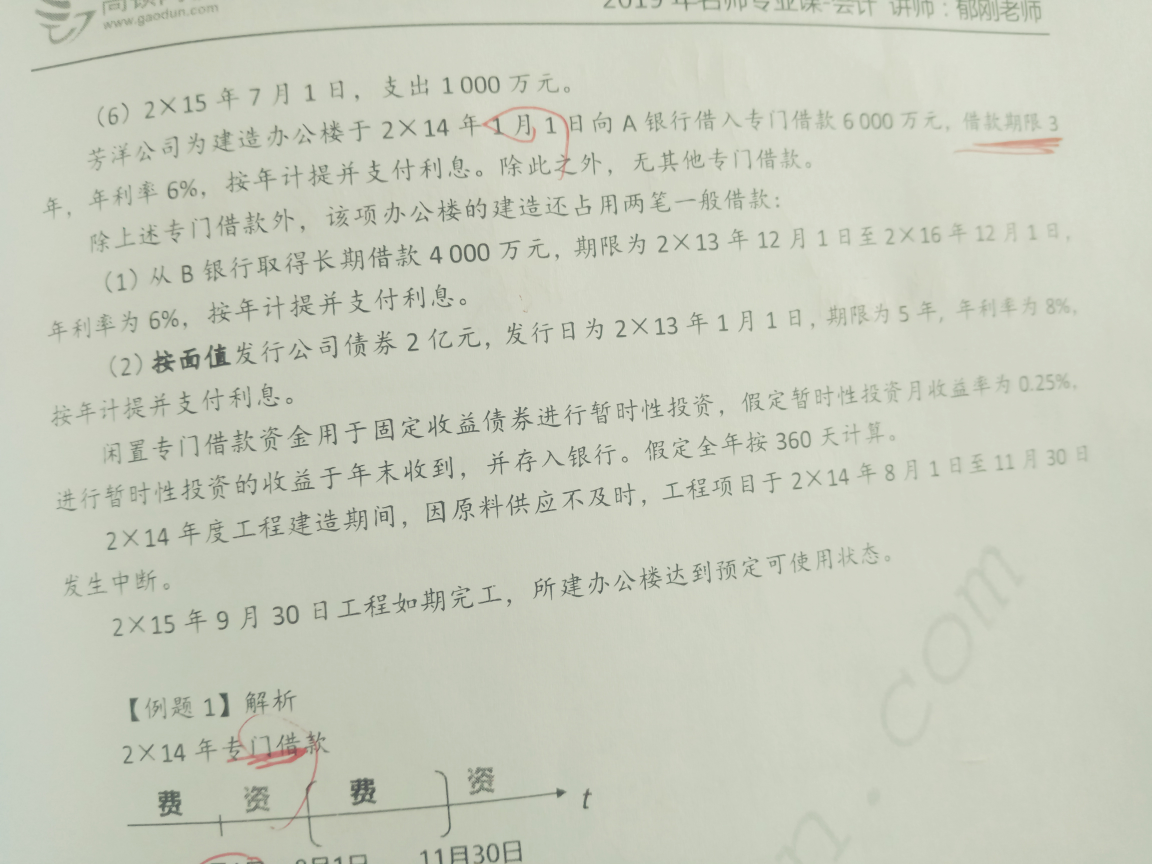 www.gaodun.com
2019年名师专业课-会计 讲师:郁刚老师
(6)2×15年7月1日,支出1 000万元。
芳洋公司为建造办公楼于2×14年1月1日向A银行借入专门借款6 000万元,借款期限3
年,年利率6%,按年计提并支付利息。除此之外,无其他专门借款。
除上述专门借款外,该项办公楼的建造还占用两笔一般借款:
(1)从B银行取得长期借款4 000万元,期限为2×13年12月1日至2×16年12月1日,
年利率为6%,按年计提并支付利息。
(2)按面值发行公司债券2亿元,发行日为2×13年1月1日,期限为5年,年利率为8%,
按年计提并支付利息。
闲置专门借款资金用于固定收益债券进行暂时性投资,假定暂时性投资月收益率为0.25%,
进行暂时性投资的收益于年末收到,并存入银行。假定全年按360天计算。
2×14年度工程建造期间,因原料供应不及时,工程项目于2×14年8月1日至11月30日
发生中断。
2×15年9月30日工程如期完工,所建办公楼达到预定可使用状态。
【例题1】解析
2×14年专门借款
费 资 费 资
t
8月1日 11月30日
n.com